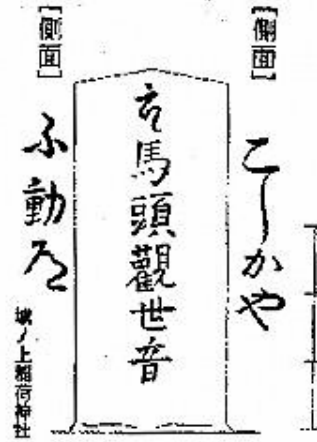 [側面]
こしかや
馬頭觀世音
[側面]
ふ動
ノ上稲荷神社